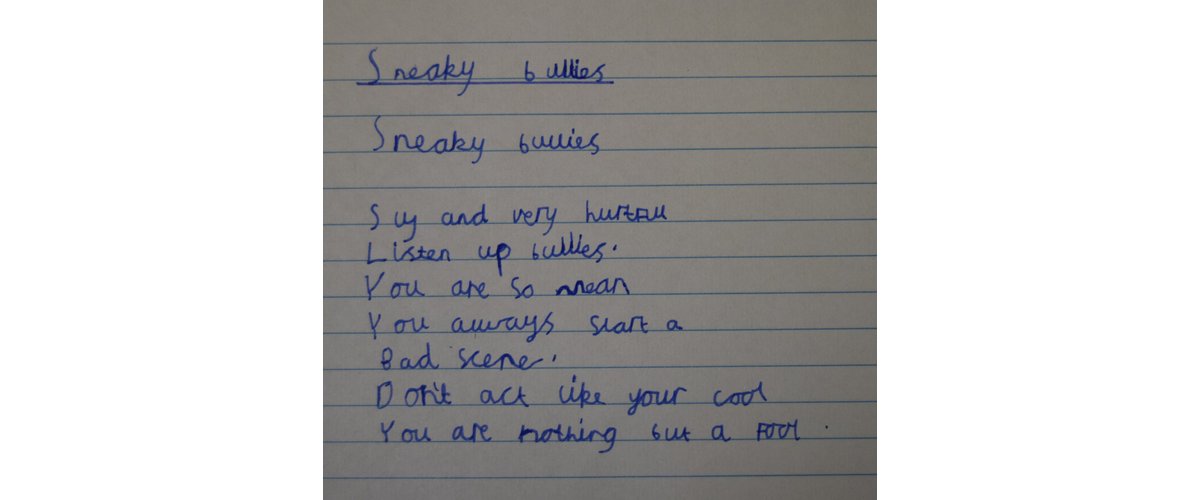 Sneaky bullies
Sneaky bullies
Sly and very hurtful
Listen up bullies.
You are so mean
You always start a
Bad scene.
Don't act like your cool
You are nothing but a fool.